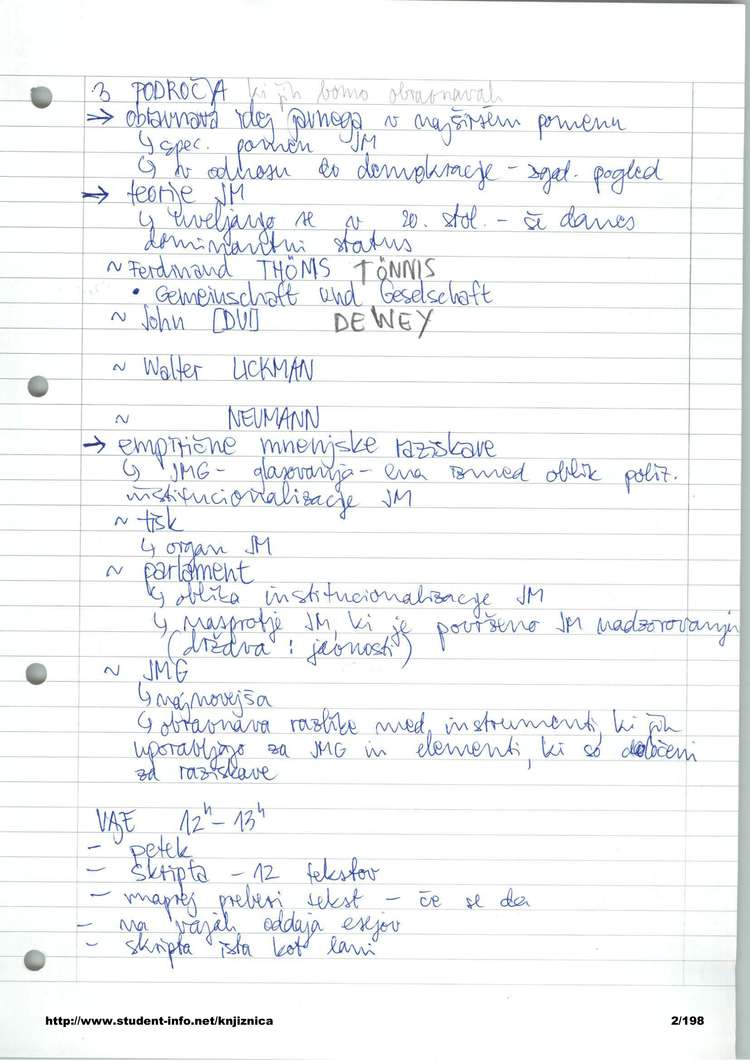 3 PODROČJA ki jih bomo obravnavali
→ obravnava idej javnega v najširšem pomenu
↳ spec. pomen JM
↳ v odnosu do demokracije - zgod. pogled
→ teorije JM
↳ uveljavijo se v 20. stol. - še danes
dominantni status
~ Ferdinand THÖMS TÖNNIS
• Gemeinschaft und Geselschaft
~ John [DUI] DEWEY
~ Walter LICKMAN
~ NEUMANN
→ empirične mnenjske raziskave
↳ JMG - glasovanja - ena izmed oblik polit.
institucionalizacije JM
~ tisk
↳ organ JM
~ parlament
↳ oblika institucionalizacije JM
↳ nasprotje JM, ki je površeno JM nadzorovanju
(država : javnosti)
~ JMG
↳ najnovejša
↳ obravnava razlike med instrumenti, ki jih
uporabljajo za JMG in elementi, ki so določeni
za raziskave
VAJE 12h - 13h
- petek
- skripta - 12 tekstov
- vnaprej preberi tekst - če se da
- na vajah oddaja esejov
- skripta ista kot lani
http://www.student-info.net/knjiznica 2/198